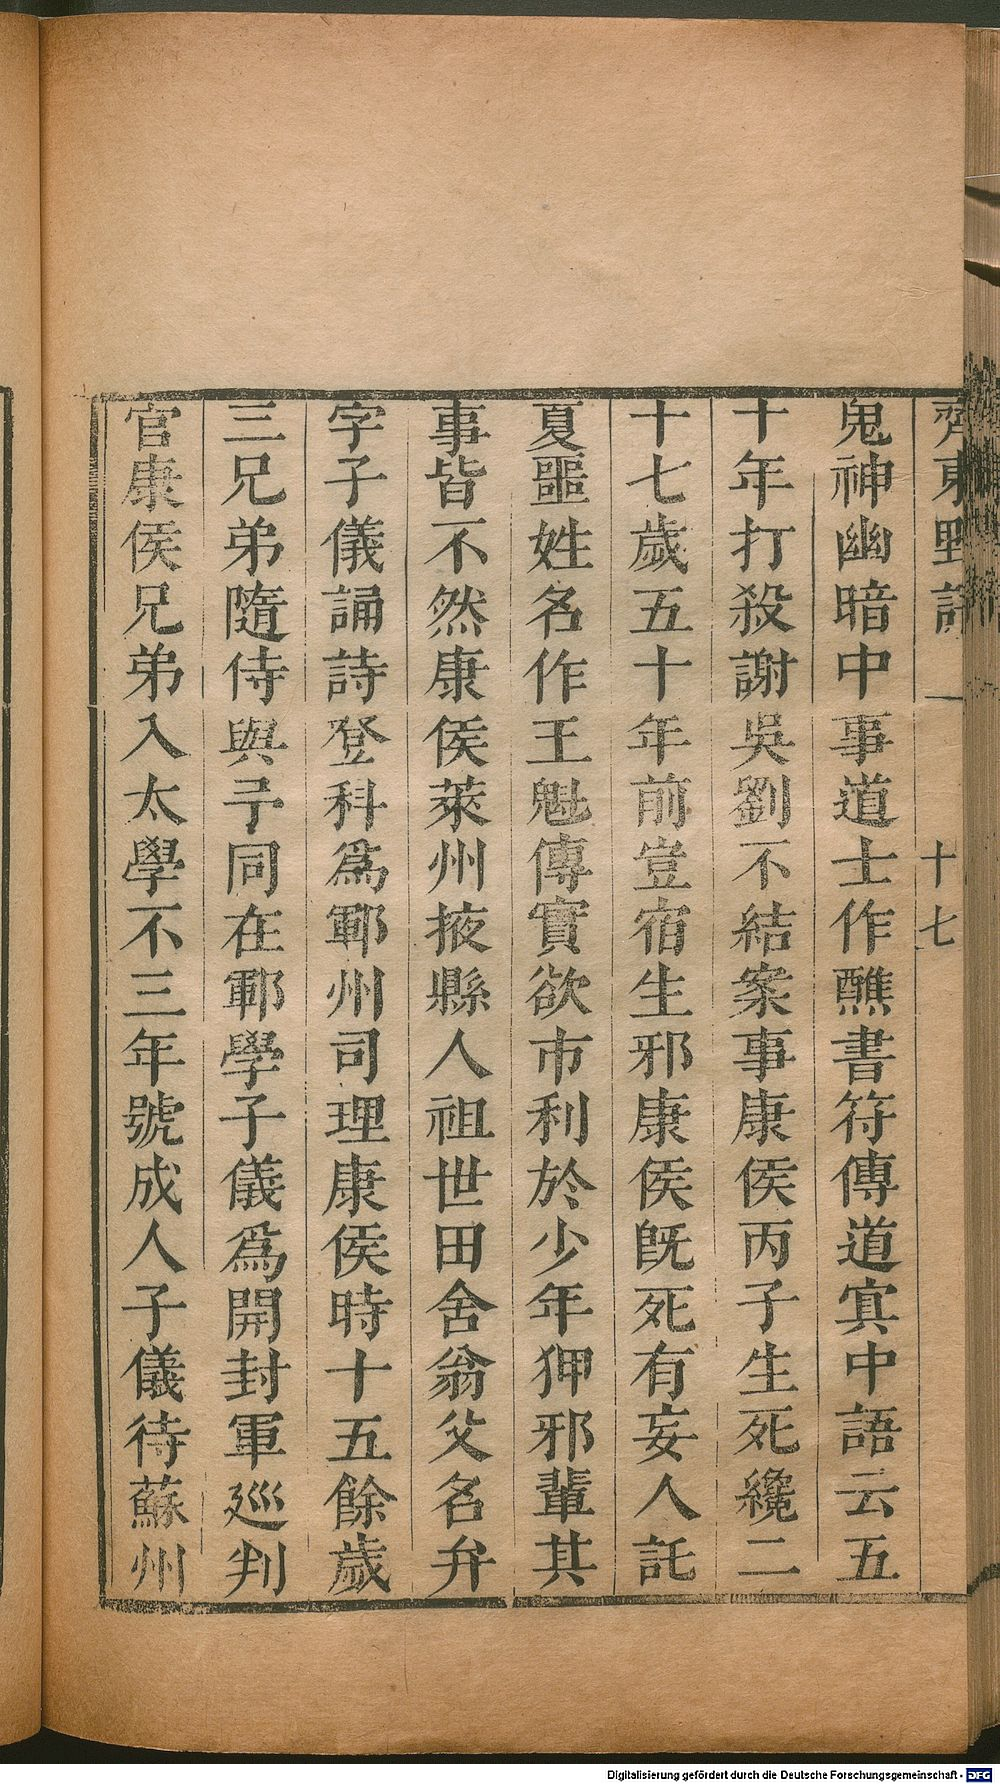 齊東野語 一 十七
鬼神幽暗中事道士作醮書符傳道寘中語云五
十年打殺謝吳劉不結案事康侯丙子生死纔二
十七歲五十年前豈宿生邪康侯旣死有妄人託
夏噩姓名作王魁傳實欲市利於少年狎邪輩其
事皆不然康侯萊州掖縣人祖世田舍翁父名弁
字子儀誦詩登科爲鄆州司理康侯時十五餘歲
三兄弟隨侍與予同在鄆學子儀爲開封軍廵判
官康侯兄弟入太學不三年號成人子儀待蘇州
Digitalisierung gefördert durch die Deutsche Forschungsgemeinschaft - DFG